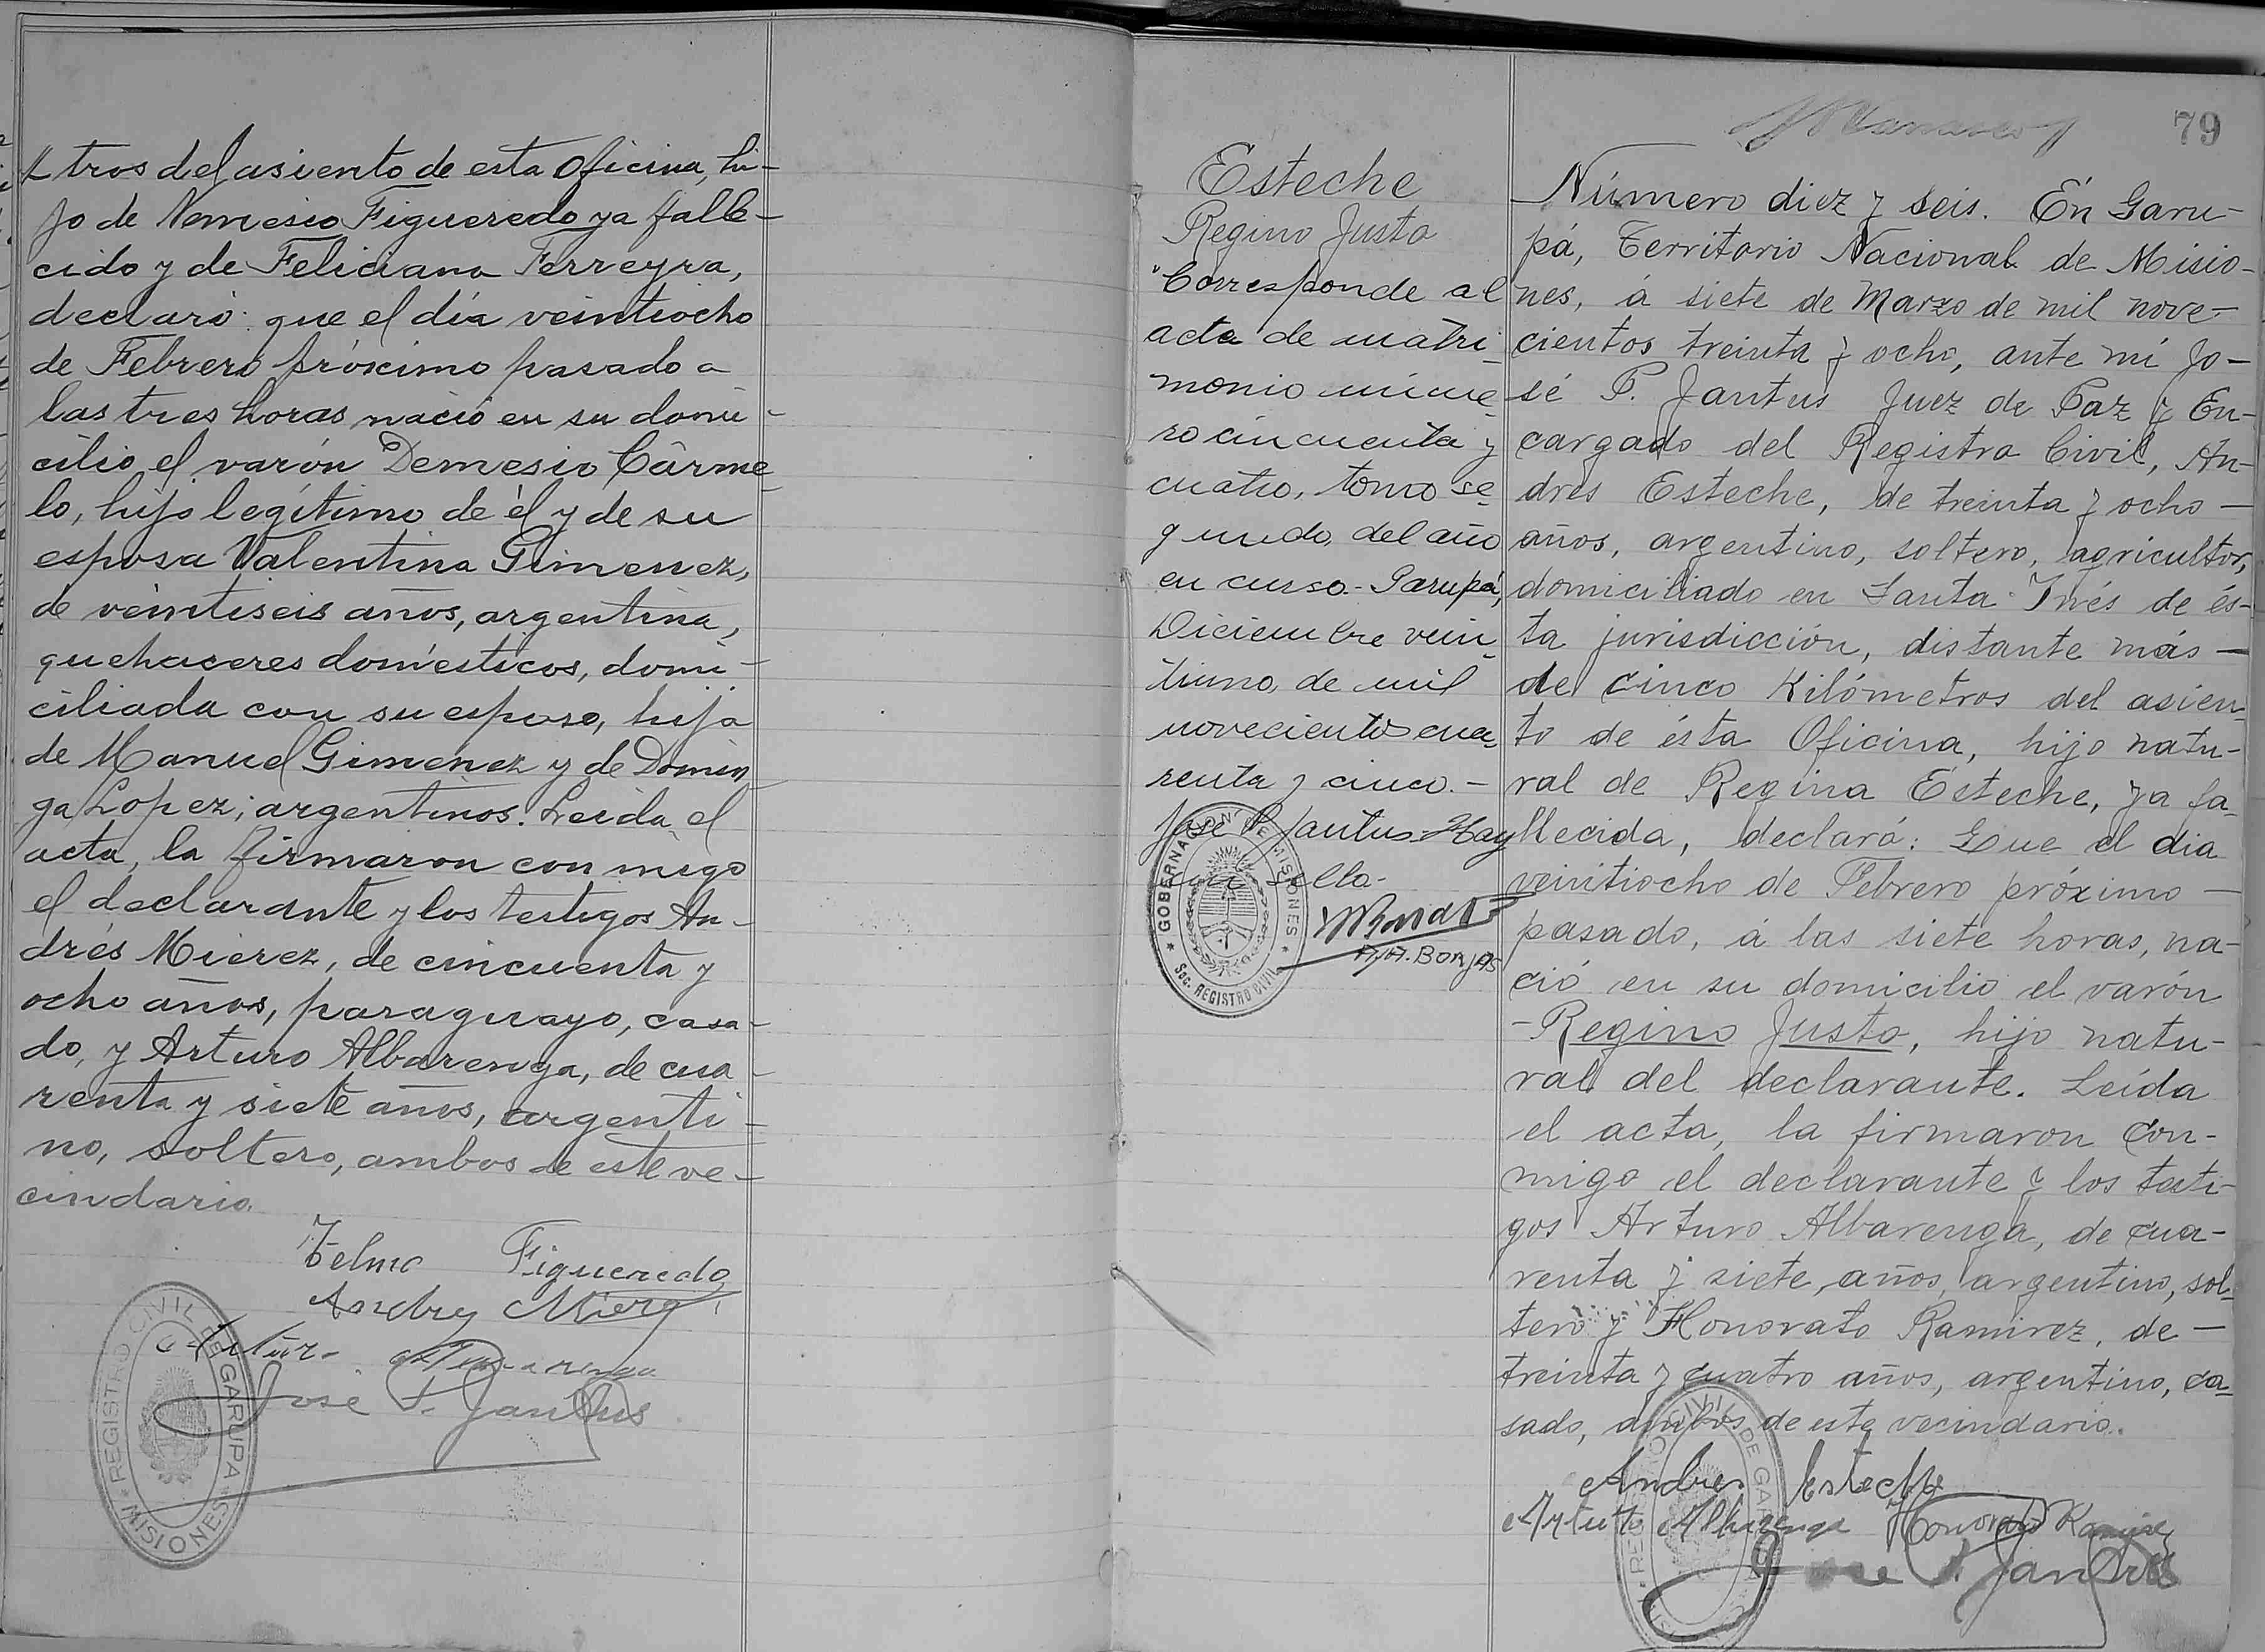 tros del asiento de esta Oficina, hi-
jo de Nemesio Figueredo ya falle-
cido y de Feliciana Ferreyra,
declaró: que el día veintiocho
de Febrero próximo pasado a
las tres horas nació en su domi-
cilio el varón Demesio Cárme-
lo, hijo legítimo de él y de su
esposa Valentina Gimenez,
de veintiseis años, argentina,
quehaceres domésticos, domi-
ciliada con su esposo, hija
de Manuel Gimenez y de Domin-
ga Lopez; argentinos. Leída el
acta, la firmaron con migo
el declarante y los testigos An-
drés Mierez, de cincuenta y
ocho años, paraguayo, casa-
do, y Arturo Albarenga, de cua-
renta y siete años, argenti-
no, soltero, ambos de este ve-
cindario.
Telmo Figueredo
Andres Mierez
Artur Albarenga
José P. Jantus
REGISTRO CIVIL DE GARUPA
MISIONES
Esteche
Regino Justo
"Corresponde al
acta de matri-
monio núme-
ro cincuenta y
cuatro, tomo se-
gundo, del año
en curso.- Garupá,
Diciembre vein-
tiuno, de mil
novecientos cua-
renta y cinco.-
José P. Jantus- Hay
un sello-
A.A. BORJAS
GOBERNACION DE MISIONES
Soc. REGISTRO CIVIL
79
Número diez y seis. En Garu-
pá, Territorio Nacional de Misio-
nes, á siete de Marzo de mil nove-
cientos treinta y ocho, ante mí Jo-
sé P. Jantus Juez de Paz y En-
cargado del Registro Civil, An-
drés Esteche, de treinta y ocho —
años, argentino, soltero, agricultor,
domiciliado en Santa Inés de és-
ta jurisdicción, distante más —
de cinco Kilómetros del asien-
to de ésta Oficina, hijo natu-
ral de Regina Esteche, ya fa-
llecida, declaró: Que el dia
veintiocho de Febrero próximo —
pasado, á las siete horas, na-
ció en su domicilio el varón
-Regino Justo, hijo natu-
ral del declarante. Leída
el acta, la firmaron con-
migo el declarante y los testi-
gos Arturo Albarenga, de cua-
renta y siete años, argentino, sol-
tero y Honorato Ramirez, de —
treinta y cuatro años, argentino, ca-
sado, ambos de este vecindario.
Andres Esteche
Arturo Albarenga Honorato Ramirez
Jose P. Jantus